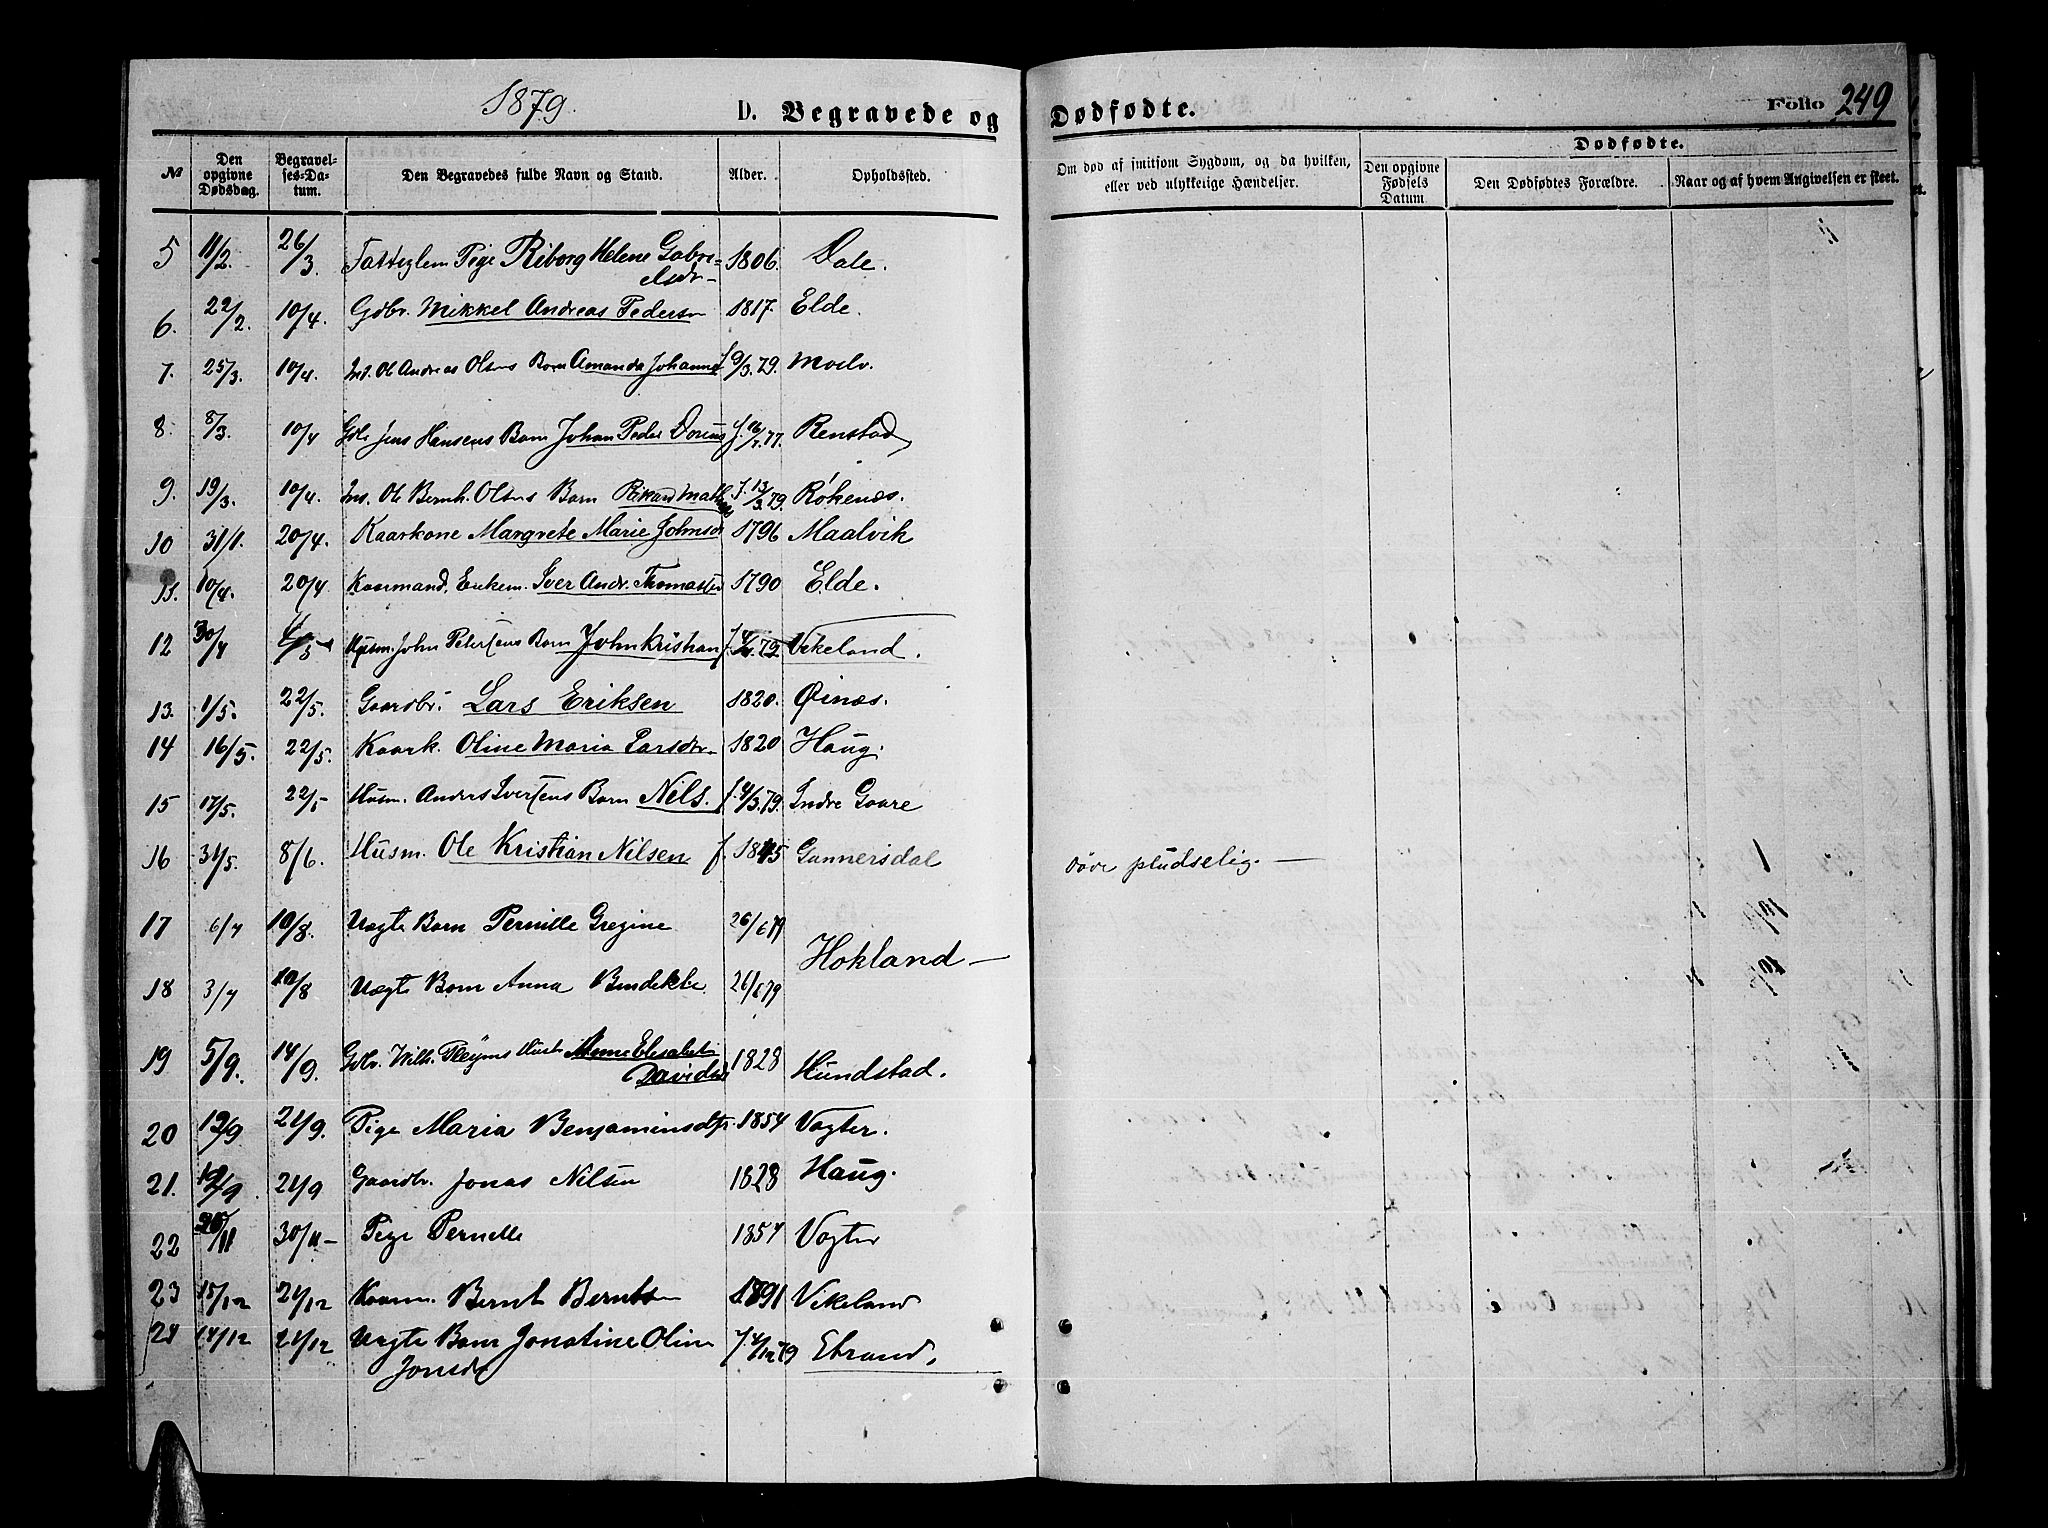 1879.
D. Begravede og Dødfødte.
Folio 249
No
Den opgivne Dødsdag.
Begravelses-Datum.
Den Begravedes fulde Navn og Stand.
Alder.
Opholdssted.
Om død af smitsom Sygdom, og da hvilken, eller ved ulykkelige Hændelser.
Dødfødte.
Den opgivne Fødsels Datum.
Den Dødfødtes Forældre.
Naar og af hvem Angivelsen er skeet.
5 11/2. 26/3. Fattiglem Pige Riborg Helene Gabri=
elsdr 1806. Dale.
6. 22/2. 10/4. Gdbr. Mikkel Andreas Pedersen 1817. Elde.
7. 25/3. 10/4. Ins. Ole Andreas Olsens Barn Amanda Johanna f 9/3.79. Moelv.
8. 8/3. 10/4 Gdbr Jens Hansens Barn Johan Peder Dorius f. 16/7.77. Renstad
9. 19/3. 10/4. Ins. Ole Bernh. Olsens Barn Rikard f. 13/3.79. Røkenæs.
10 31/1. 20/4. Kaarkone Margrete Marie Johnsdr 1796 Maalvik
11. 10/4. 20/4 Kaarmand, Enkem. Iver Andr. Thomassen 1790 Elde.
12 30/4 /5 Husm. John Petersens Barn John Kristian f. 79. Vikeland.
13. 1/5. 22/5. Gaardbr. Lars Eriksen 1820. Øinæs.
14 16/5. 22/5. Kaark. Oline Maria Larsdr. 1820 Haug.
15 17/5. 22/5 Husm. Anders Ivertsens Barn Nils. f. 4/3.79. Indre Gaare
16 31/5. 8/6. Husm. Ole Kristian Nilsen f. 1845 Gunnersdal døde pludselig.
17 6/7 10/8. Uægte Barn Pernille Gregine 26/6 79
Hokland
18 3/7 10/8 Uægte Barn Anna Bendikte. 26/6 79
19 5/9. 14/9. Gdbr. Wilh. Pleyms Hustr Anne Elisabet
Davidsdr 1828 Hundstad.
20 12/9 21/9. Pige Maria Benjaminsdtr. 1854 Vogter.
21. 12/9. 21/9 Gaardbr. Jonas Nilsen 1828 Haug.
22 /11 30/11 Pige Pernille 1854 Vogter
23 15/12 21/12 Kaarm. Bernt Berntsen 1791 Vikeland
24 14/12 21/12 Uægte Barn Jonatine Oline
Jonsdr f. 4/12 79 Elvrand.